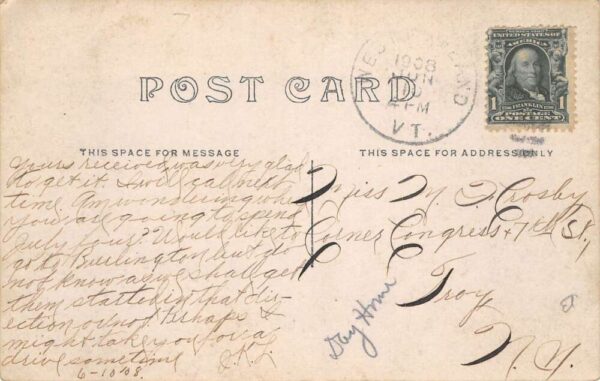 POST CARD
1908
JUN
4 PM
VT.
UNITED STATES OF
AMERICA
FRANKLIN
1 POSTAGE 1
ONE CENT
THIS SPACE FOR MESSAGE
THIS SPACE FOR ADDRESS ONLY
Yours received was very glad
to get it. I will call next
time. Am wondering where
you are going to spend
July four? Would like to
go to Burlington but do
not know as we shall get
them started in that dir-
ection or not. Perhaps I
might take you for a
drive sometime
6-10-08
Miss M Crosby
Corner Congress & 7th St,
Troy
N. Y.